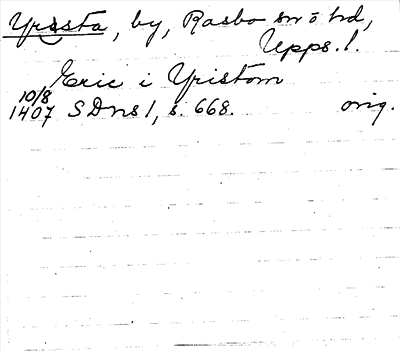 Yrssta, by, Rasbo sn o hd,
Upps. l.
Eric i Yristom
10/8
1407 SDns 1, s. 668. orig.